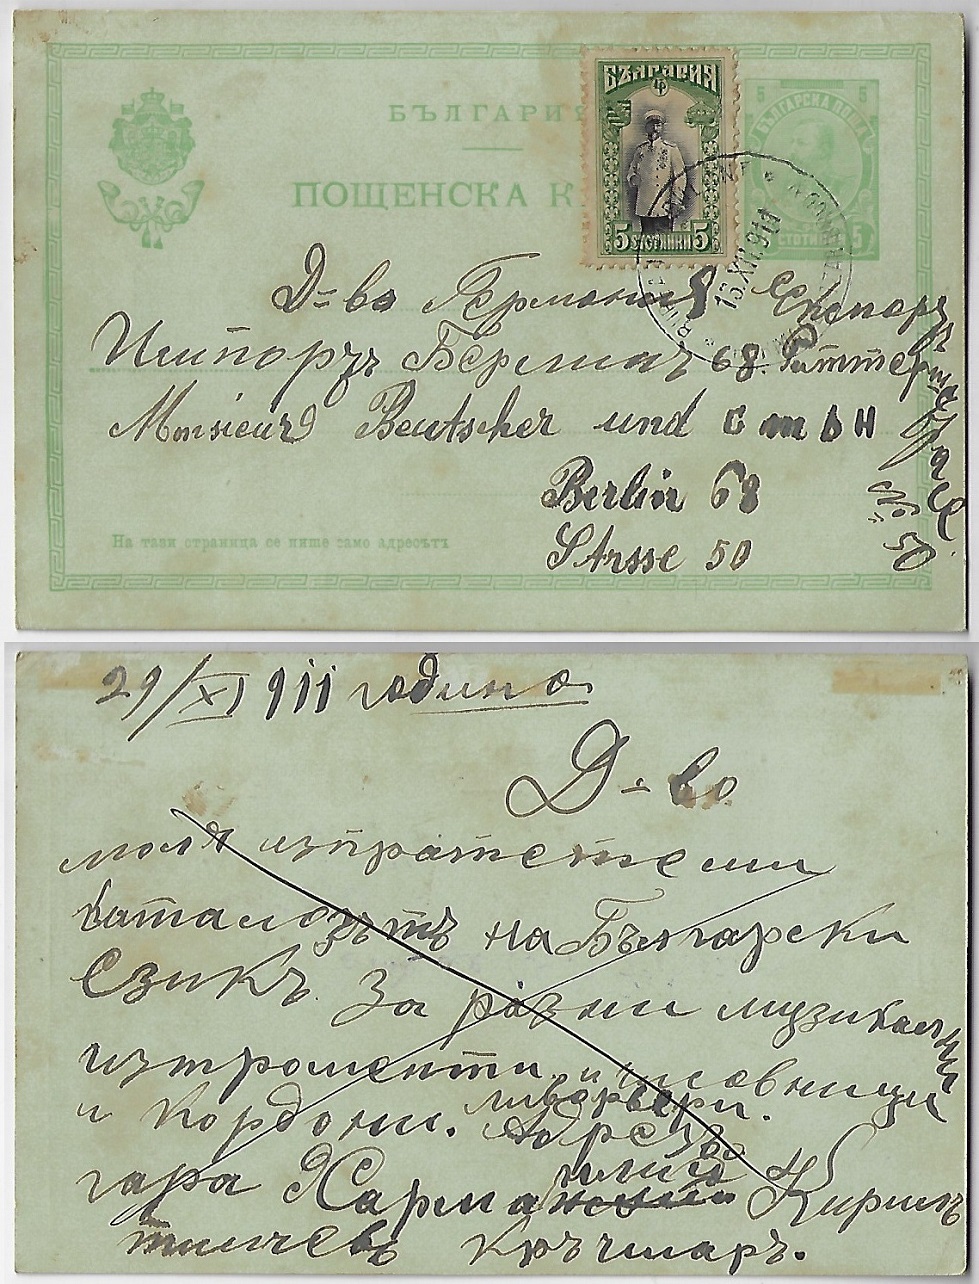 БЪЛГАРИЯ
ПОЩЕНСКА К
БЪЛГАРИЯ
5 СТОТИНКИ 5
5 5
БЪЛГАРСКА ПОЩА
5 СТОТИНКИ 5
13.XII.911
Д-во Германия Експортъ
Импортъ Берлинъ 68. Риттерщрасе
№ 50
Monsieur Deutscher und G m b H
Berlin 68
Strsse 50
На тази страница се пише само адресътъ
29/XI 911 година
Д-во
моля изпратете ми
каталогътъ на Български
Езикъ за разни музикални
изтроменти и
и Кордони. ливорвери.
Адресъ
гара Харманлий Кирилъ
тилчевъ Кръчмаръ.